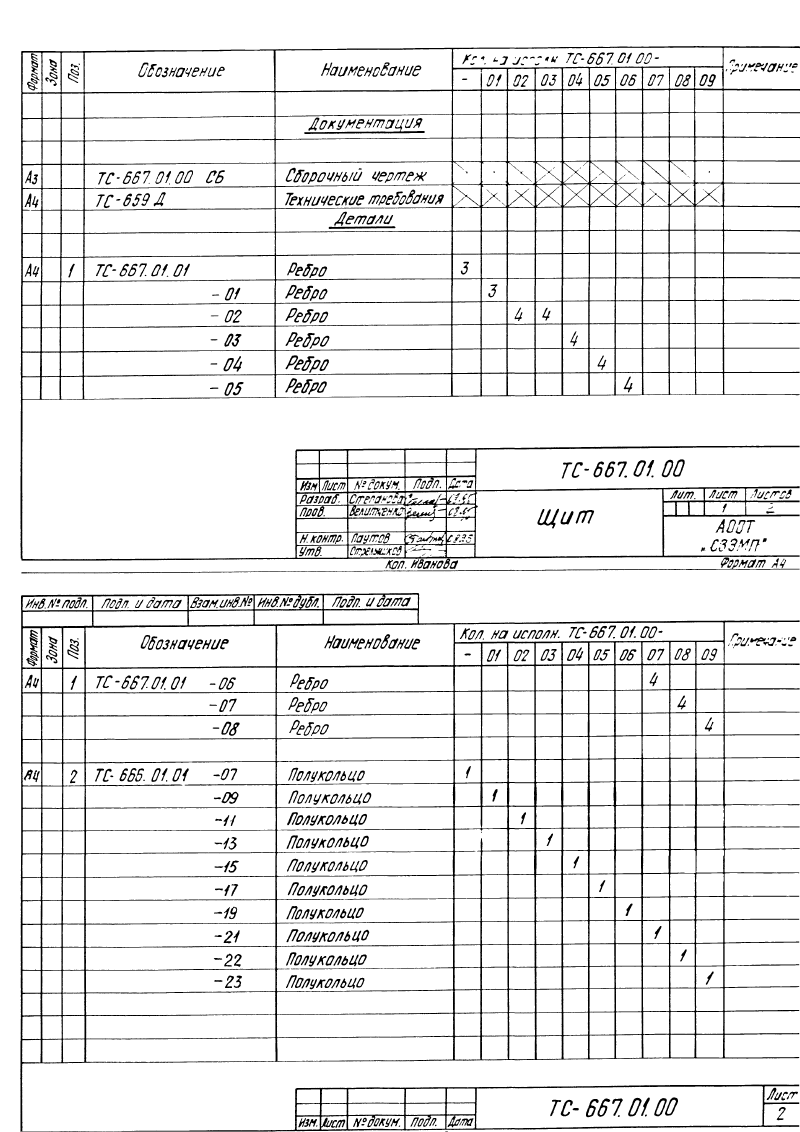 Формат Зона Поз. Обозначение Наименование Кол. на исполн. ТС-667.01.00- Примечание
- 01 02 03 04 05 06 07 08 09
Документация
А3 ТС-667.01.00 СБ Сборочный чертеж
А4 ТС-659 Д Технические требования
Детали
А4 1 ТС-667.01.01 Ребро 3
-01 Ребро 3
-02 Ребро 4 4
-03 Ребро 4
-04 Ребро 4
-05 Ребро 4
ТС-667.01.00
Изм Лист № докум. Подп. Дата
Разраб. Степанова
Пров. Величенко
Н.контр. Паутов
Утв. Стрельников
Щит
Лит. Лист Листов
1 2
АООТ
„СЗЭМП"
Коп. Иванова Формат А4
Инв.№ подл. Подп. и дата Взам.инв.№ Инв.№ дубл. Подп. и дата
Формат Зона Поз. Обозначение Наименование Кол. на исполн. ТС-667.01.00- Примечание
- 01 02 03 04 05 06 07 08 09
А4 1 ТС-667.01.01 -06 Ребро 4
-07 Ребро 4
-08 Ребро 4
А4 2 ТС-666.01.01 -07 Полукольцо 1
-09 Полукольцо 1
-11 Полукольцо 1
-13 Полукольцо 1
-15 Полукольцо 1
-17 Полукольцо 1
-19 Полукольцо 1
-21 Полукольцо 1
-22 Полукольцо 1
-23 Полукольцо 1
Изм. Лист № докум. Подп. Дата
ТС-667.01.00
Лист
2